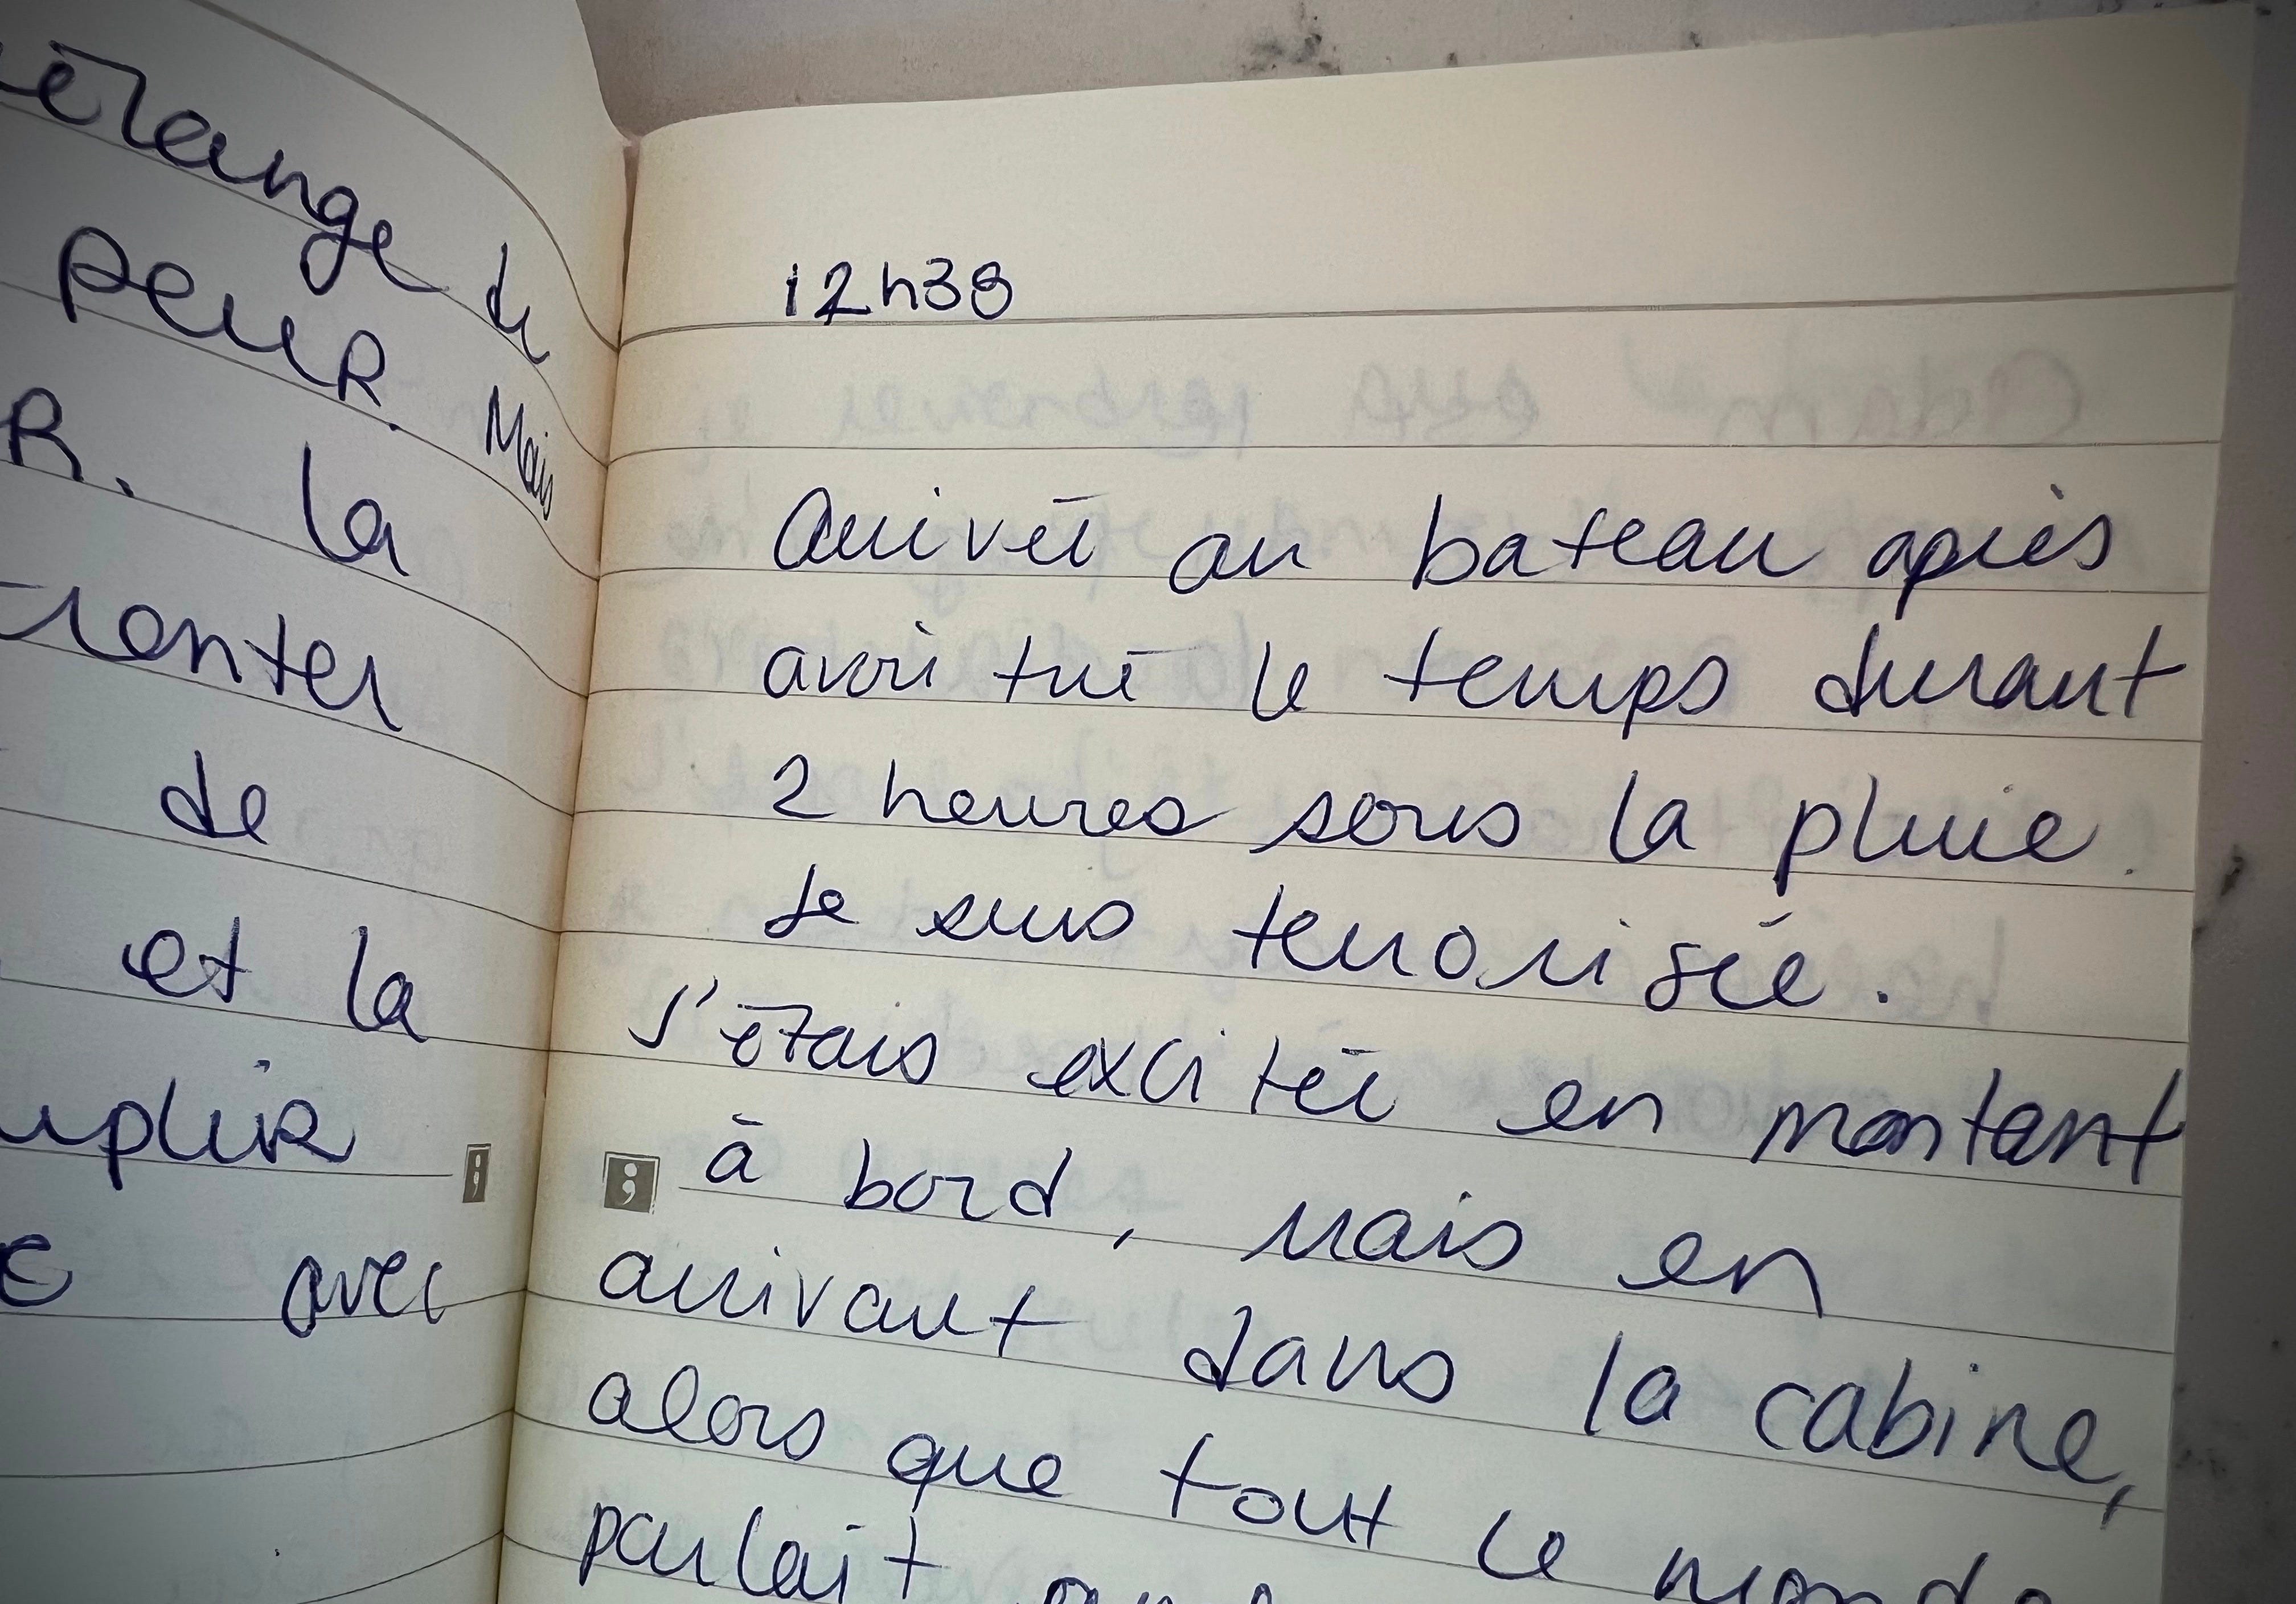 étrange de
peur. Mais
R. la
de
et la
avec
12h38
Arrivée au bateau après
avoir tué le temps durant
2 heures sous la pluie.
Je suis terrorisée.
J'étais excitée en montant
à bord, mais en
arrivant dans la cabine,
alors que tout le monde
parlait